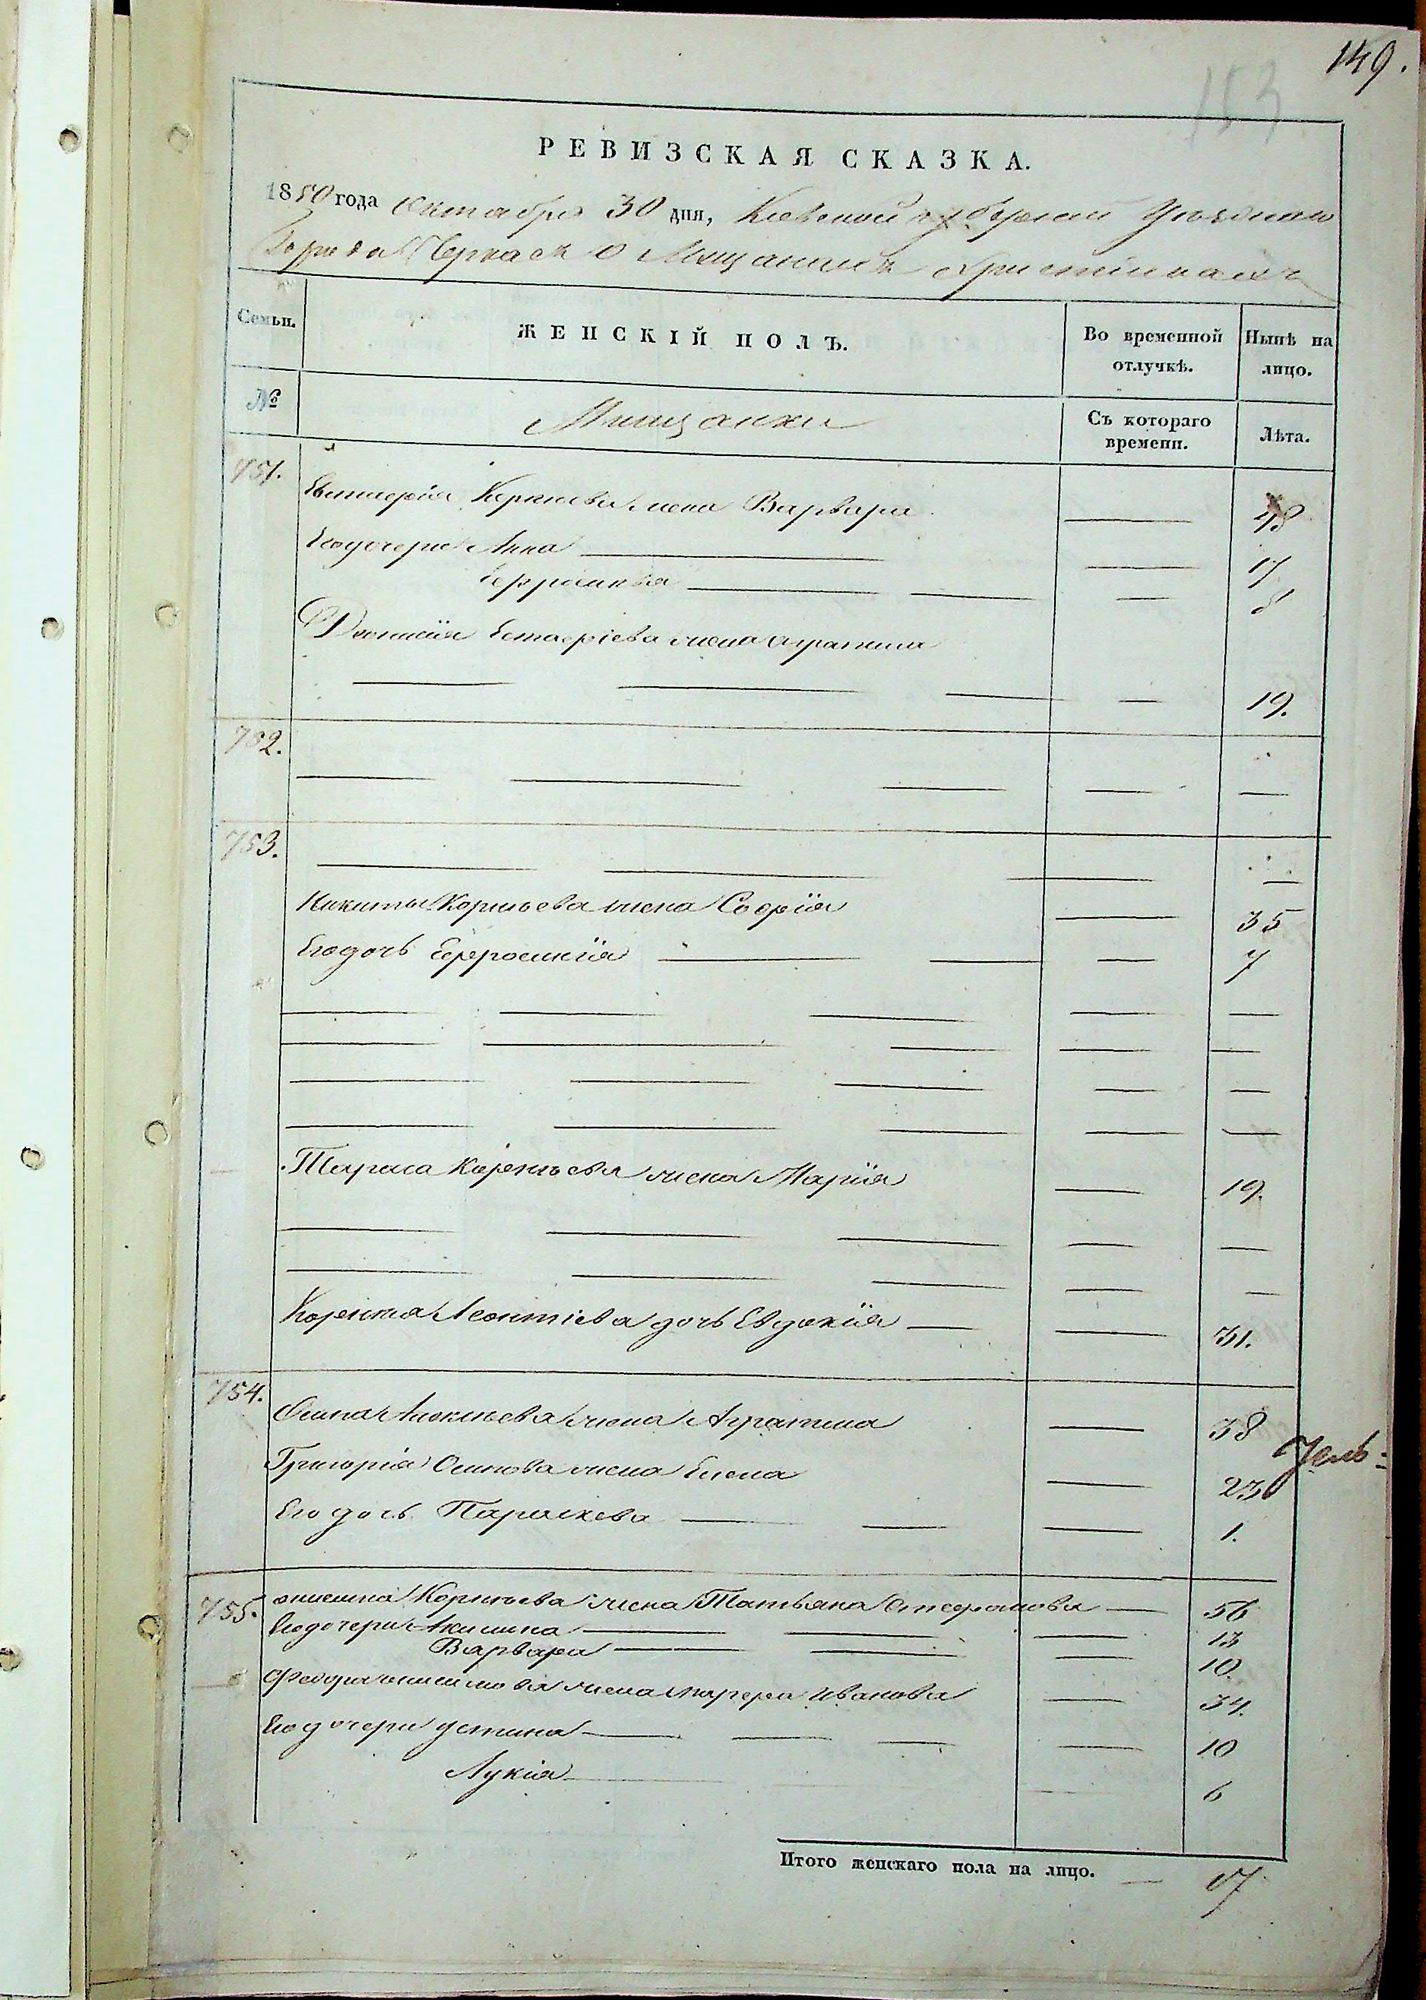 149.
153
РЕВИЗСКАЯ СКАЗКА.
1850 года октября 30 дня, Киевской губернии Уезднаго
Города Черкас о Мещанах Христіанахъ
Семьи. ЖЕНСКІЙ ПОЛЪ. Во временной отлучкѣ. Нынѣ на лицо.
№ Мещанки Съ котораго времени. Лѣта.
751.
Евтиерія Корнѣева жена Варвара — 48
Его дочери Анна — — 17
— — — 8
Діонисія жена Агрипина
— — — — 19.
752.
— — — — —
753.
— — — —
Никиты Корнѣева жена Софія — 35
Его дочь Ефросинія — — — 7
— — — — —
— — — — —
— — — — —
— — — — —
Тараса Корнѣева жена Марія — 19.
— — — — —
— — — — —
Корнѣя Леонтіева дочь Евдокія — — 31.
754.
Осипа жена Агрипина — 38
Григорія Осипова жена Елена — 23
Его дочь Параскева — — — 1.
755.
Анисима Корнѣева жена Татьяна Стефанова — 56
Его дочери Акилина — — — 13
Варвара — — — 10.
Федора Анисимова жена Марфа Иванова — 34.
Его дочери Устина — — — — 10
Лукія — — 6
Итого женскаго пола на лицо. — 17